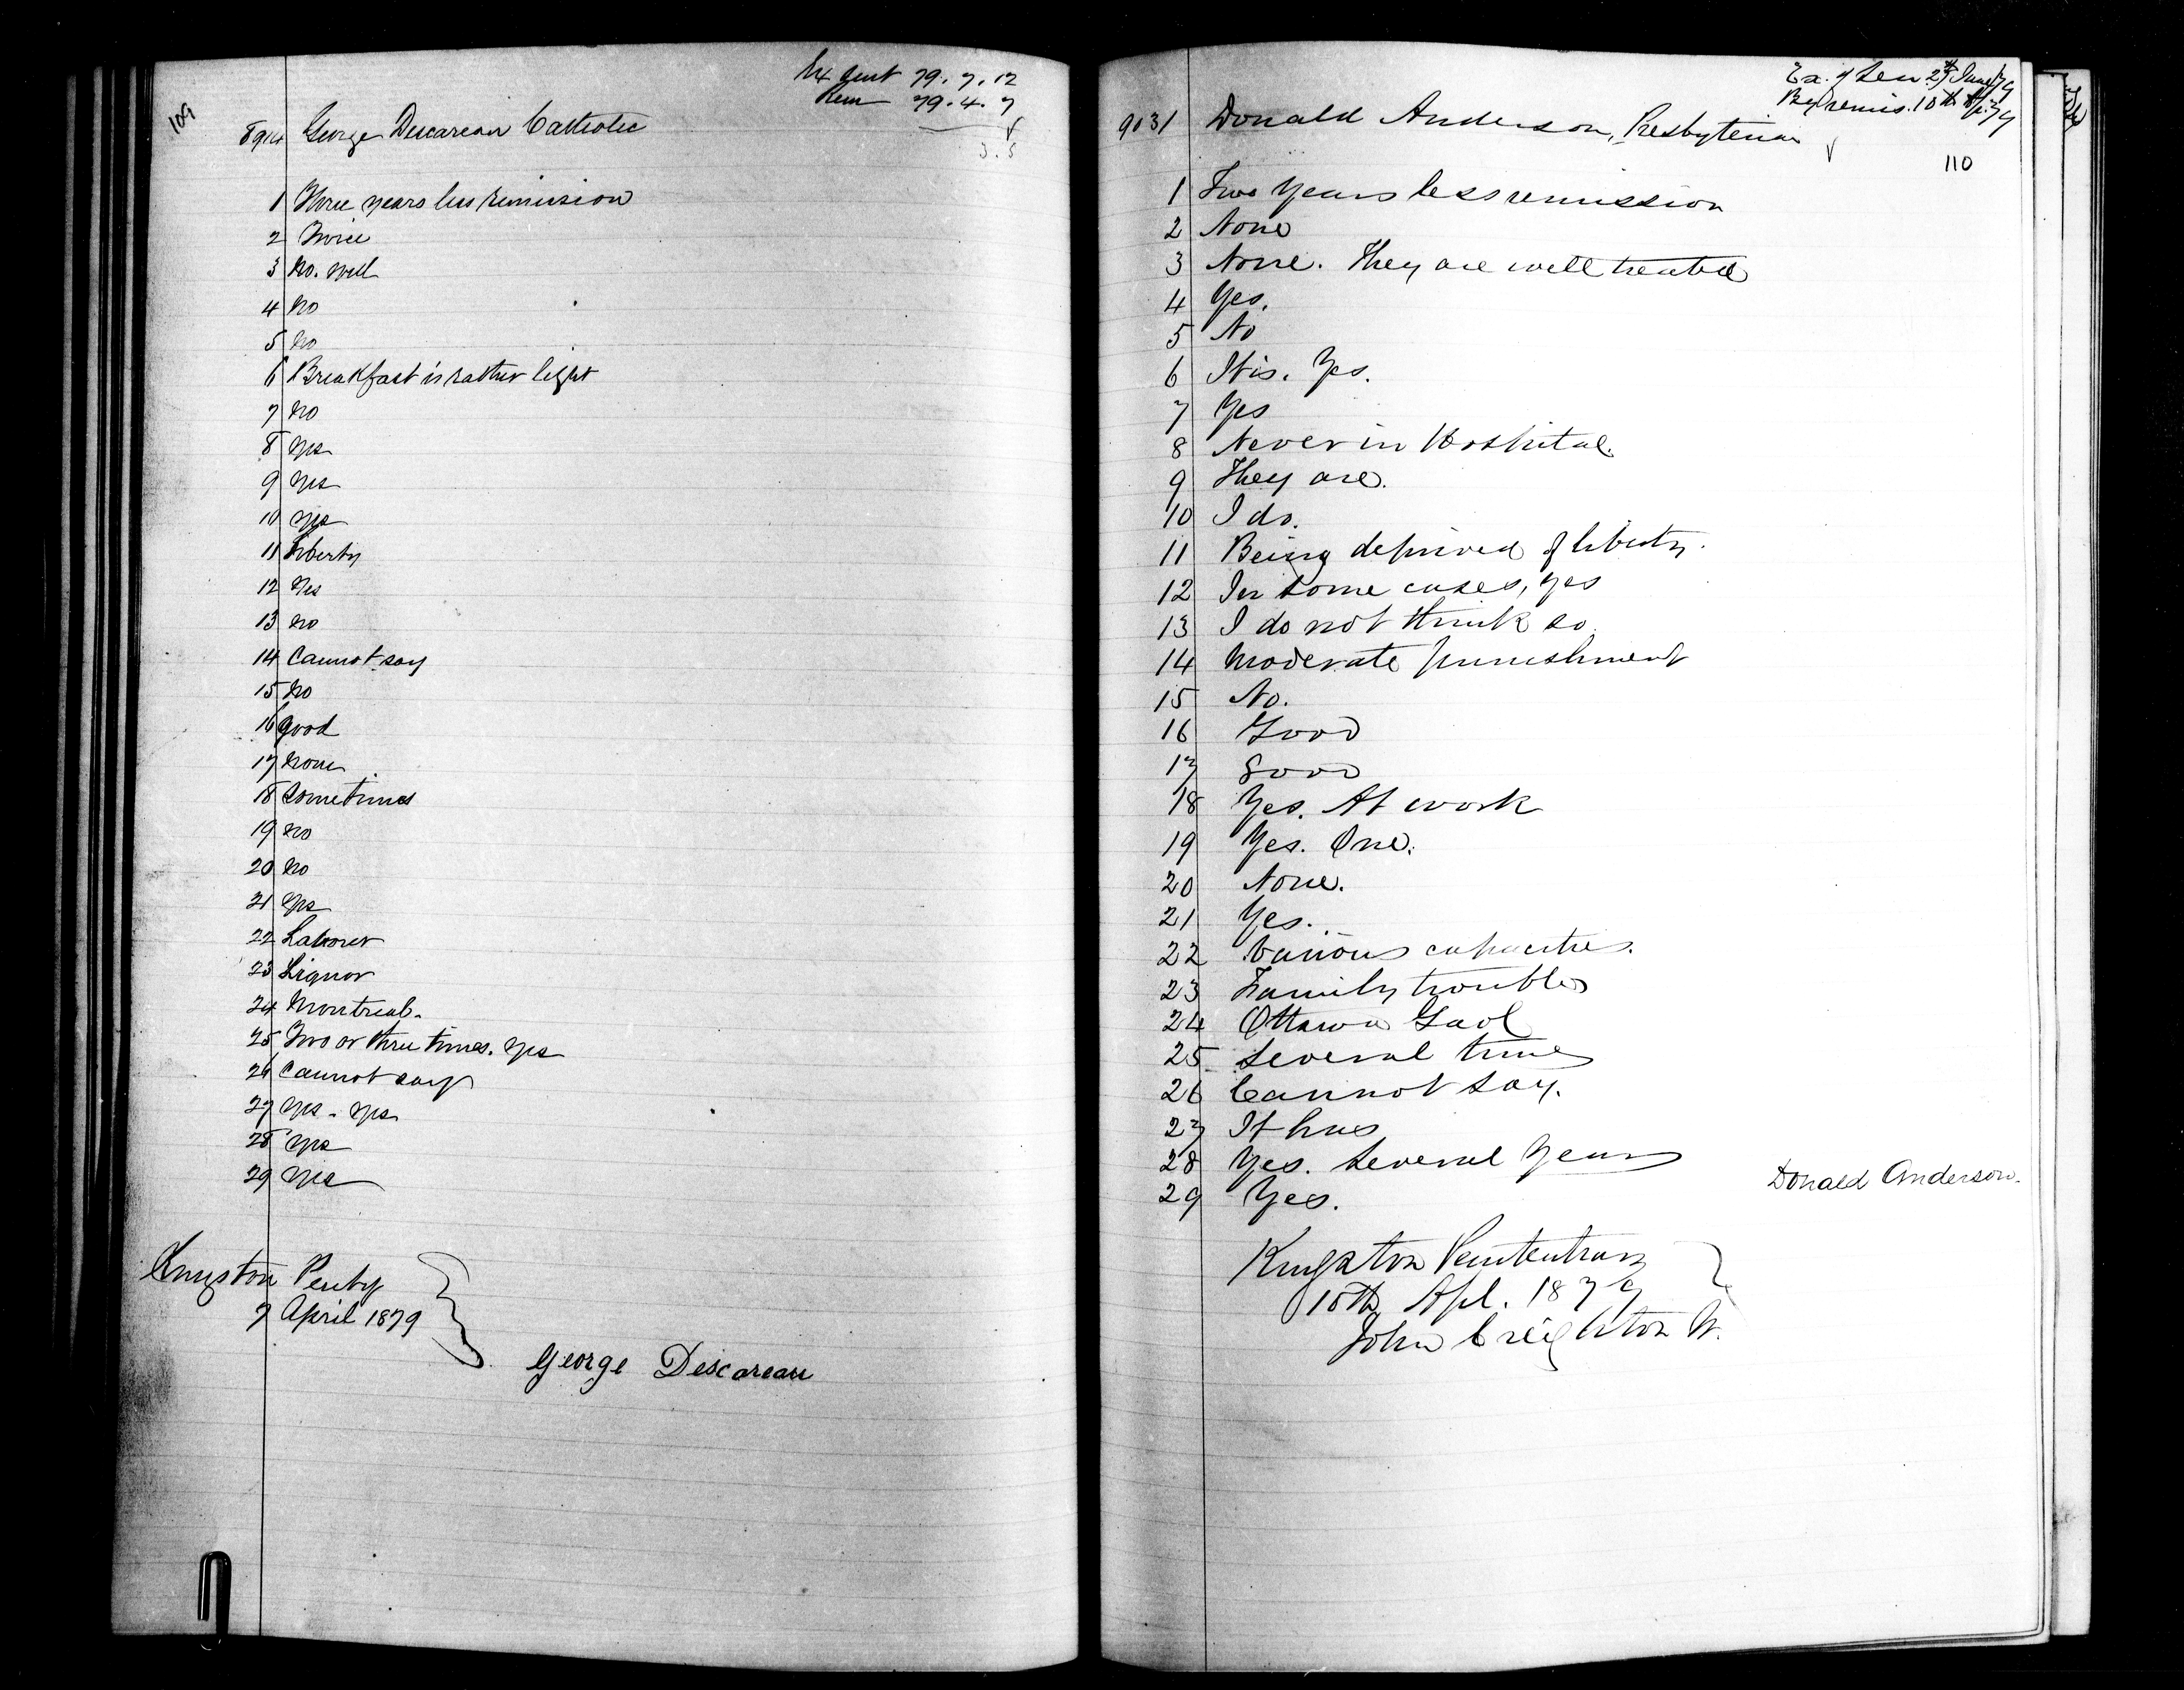 109
Ex Sent 79.7.12
Rem 79.4.7
8914 George Descareau Catholic
3.5
1 Three years less remission
2 Twice
3 No. well
4 No
5 No
6 Breakfast is rather light
7 No
8 Yes
9 Yes
10 Yes
11 Liberty
12 Yes
13 No
14 Cannot say
15 No
16 good
17 None
18 Sometimes
19 No
20 No
21 Yes
22 Laborer
23 Liquor
24 Montreal.
25 Two or three times. Yes
26 Cannot say
27 Yes - Yes
28 Yes
29 Yes
Kingston Penty
7 April 1879
George Descareau
Ex. of Sen 27th June/79
By remis. 10th Ap. 79
9031 Donald Anderson, Presbyterian
110
1 Two Years less remission
2 None
3 None. They are well treated
4 Yes.
5 No
6 It is. Yes.
7 Yes
8 Never in Hospital.
9 They are.
10 I do.
11 Being deprived of liberty.
12 In some cases, yes
13 I do not think so
14 Moderate punishment
15 No.
16 Good
17 Good
18 Yes. At work
19 Yes. One.
20 None.
21 Yes.
22 Various capacities.
23 Family troubles
24 Ottawa Gaol
25 Several times
26 Cannot say.
27 It has
28 Yes. Several Years
29 Yes.
Donald Anderson.
Kingston Penitentiary
10th Apl. 1879
John Creighton W.